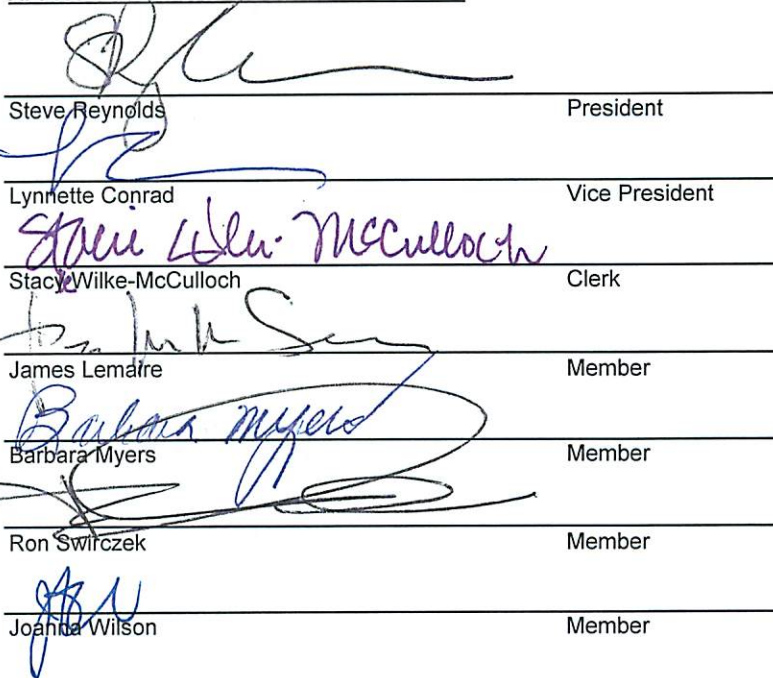 Steve Reynolds President
Lynnette Conrad Vice President
Stacie Wilke-McCulloch
Stacy Wilke-McCulloch Clerk
James Lemaire Member
Barbara Myers
Barbara Myers Member
Ron Swirczek Member
Joanna Wilson Member